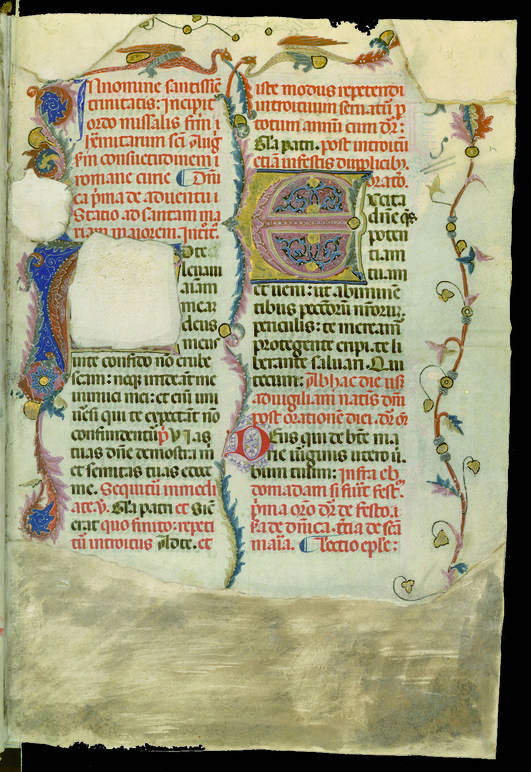 In nomine sanctissie
trinitatis: Incipit
ordo missalis frm i
heremitarum sci Aug
scdm consuetudinem
romane curie Dni
ca prima de adventu
Statio ad sanctam ma
riam maiorem. Introit.
Ad te
levavi
aiam
mea
deus
meus
in te confido no erube
scam: neqz irrideant me
inimici mei: et eni uni
versi qui te expectant no
confundentur. p Vias
tuas dne demostra m
et semitas tuas edoce
me. Sequitur immedi
ate. Gla patri et Sic
erat quo finito: repeti
tur introitus Ad te. et
iste modus repetendi
introitum servatur p
totum annum cum dr:
Gla patri. post introitu
etiam in festis duplicib.
orato.
Excita
dne qs
poten
tiam
tuam
et veni: ut ab iminen
tibus peccatoru nrorum
periculis: te mereamur
protegente eripi. te li
berante salvari. Qui
vivis. Ab hac die usqz
ad vigiliam natalis dni
post orationem diei. dr or
Deus qui de bte ma
rie virginis utero v
bum tuum: Infra eb
domadam si fuerit fest.
prima oro dr de festo.
de dnica. tia de sca
maria. Lectio eple: